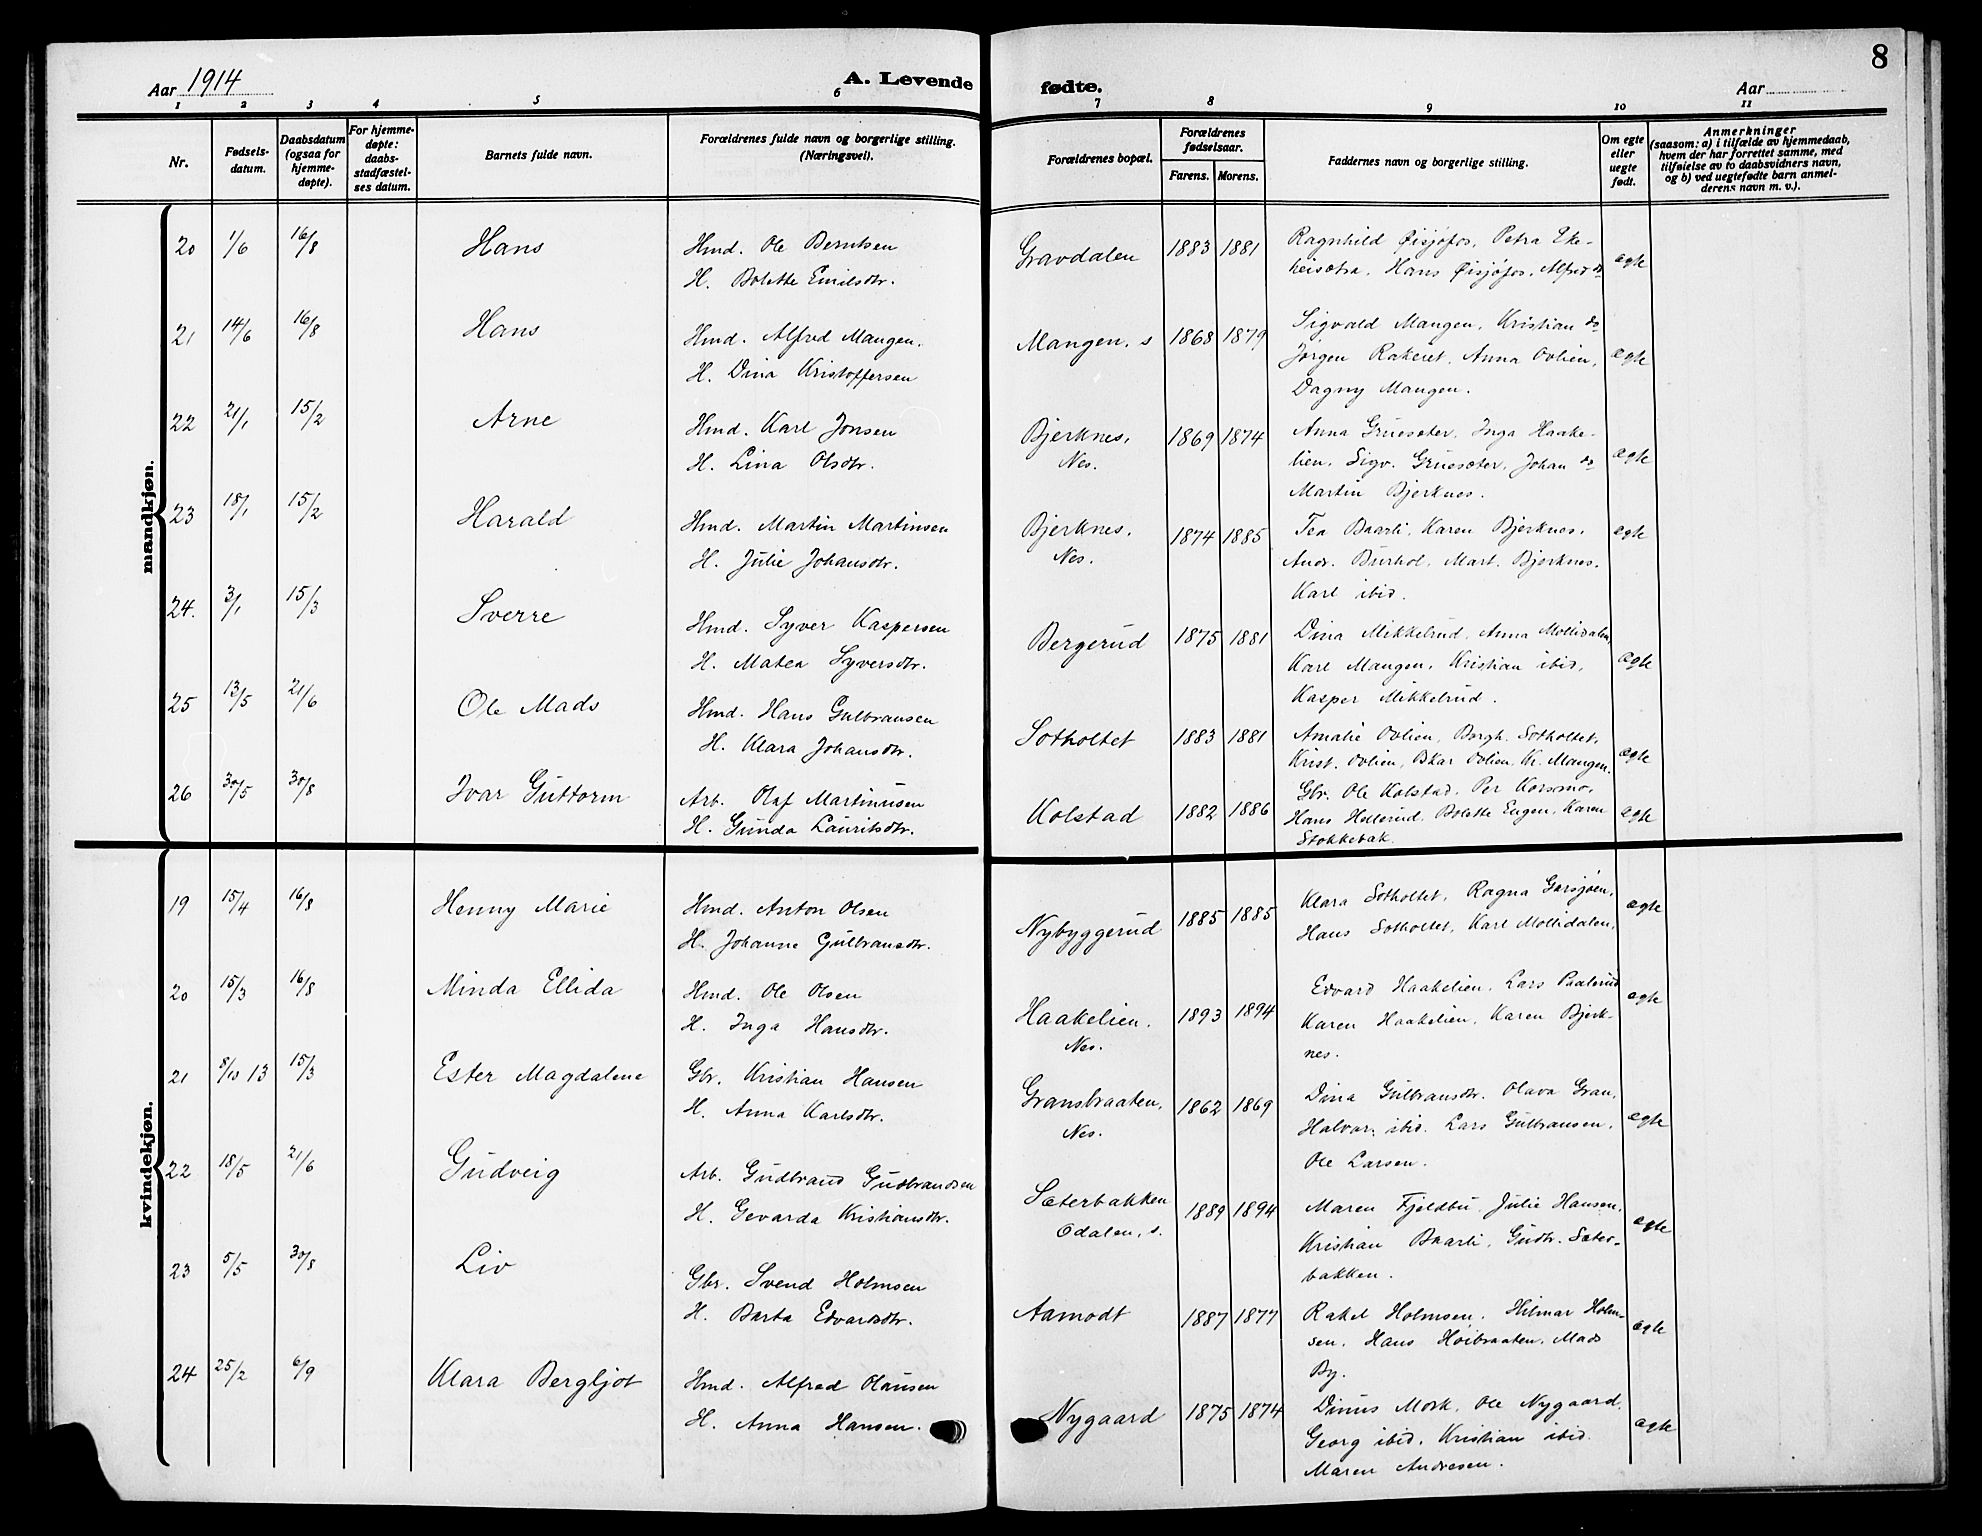 8
Aar 1914
A. Levende
fødte.
Aar
1 2 3 4 5 6 7 8 9 10 11
Nr.
Fødsels-
datum.
Daabsdatum
(ogsaa for
hjemme-
døpte).
For hjemme-
døpte:
daabs-
stadfæstel-
ses datum.
Barnets fulde navn.
Forældrenes fulde navn og borgerlige stilling.
(Næringsvei).
Forældrenes bopæl.
Forældrenes
fødselsaar.
Farens. Morens.
Faddernes navn og borgerlige stilling.
Om egte
eller
uegte
født.
Anmerkninger
(saasom: a) i tilfælde av hjemmedaab,
hvem der har forrettet samme, med
tilføielse av to daabsvidners navn,
og b) ved uegtefødte barn anmel-
derens navn m. v.).
mandkjøn.
20 1/6 16/8 Hans Hmd. Ole Berntsen
H. Bolette Emilsdtr.
Gravdalen 1883 1881 Ragnhild Øisjøfos, Petra Eke-
heisætra, Hans Øisjøfos, Alfred do
egte
21 14/6 16/8 Hans Hmd. Alfred Mangen.
H. Dina Kristoffersen
Mangen, s 1868 1879 Sigvald Mangen, Kristian do
Jørgen Rakeret, Anna Ovlien,
Dagny Mangen.
egte
22 21/1 15/2 Arne Hmd. Karl Jonsen
H. Lina Olsdtr.
Bjerknes,
Nes.
1869 1874 Anna Gruesæter, Inga Haake-
lien, Sigv. Gruesæter, Johan do
Martin Bjerknes.
egte
23 18/1 15/2 Harald Hmd. Martin Martinsen
H. Julie Johansdtr.
Bjerknes,
Nes.
1874 1885 Tea Baarli, Karen Bjerknes,
Andr. Burhol, Mart. Bjerknes,
Karl ibid.
egte
24. 3/1 15/3 Sverre Hmd. Syver Kaspersen
H. Matea Syversdtr.
Bergerud 1875 1881 Dina Mikkelrud, Anna Mollidalen,
Karl Mangen, Kristian ibid,
Kasper Mikkelrud.
egte
25 13/5 21/6 Ole Mads Hmd. Hans Gulbransen
H. Klara Johansdtr.
Sotholtet 1883 1881 Amalie Ovlien, Borgh. Sotholtet,
Krist. Ovlien, Oskar Ovlien, Kr. Mangen.
egte
26 30/5 30/8 Ivar Guttorm Arb. Olaf Martinusen
H. Gunda Lauritsdtr.
Kolstad 1882 1886 Gbr. Ole Kolstad, Per Korsmo,
Hans Hellerud, Bolette Engen, Karen
Stokkebak.
egte
kvindekjøn.
19 15/4 16/8 Henny Marie Hmd. Anton Olsen
H. Johanne Gulbransdtr.
Nybyggerud 1885 1885 Klara Sotholtet, Ragna Gørsjøen,
Hans Sotholtet, Karl Mollidalen,
egte
20 15/3 16/8 Minda Ellida Hmd. Ole Olsen
H. Inga Hansdtr.
Haakelien,
Nes.
1893 1894 Edvard Haakelien, Lars Paalerud
Karen Haakelien, Karen Bjerk-
nes.
egte
21 8/10 13 15/3 Ester Magdalene Gbr. Kristian Hansen
H. Anna Karlsdtr.
Gransbraaten,
Nes.
1862 1869 Dina Gulbransdtr. Olava Gran,
Halvar, ibid. Lars Gulbransen,
Ole Larsen.
egte
22 18/5 21/6 Gudveig Arb. Gudbrand Gudbrandsen
H. Gevarda Kristiansdtr.
Sæterbakken
Odalen, s.
1889 1894 Maren Fjeldbu, Julie Hansen,
Kristian Baarli, Gudbr. Sæter-
bakken.
egte
23 5/5 30/8 Liv Gbr. Svend Holmsen
H. Barta Edvardsdtr.
Aamodt 1887 1877 Rakel Holmsen, Hilmar Holm-
sen, Hans Høibraaten, Mads
By.
egte
24 25/2 6/9 Klara Bergljot Hmd. Alfred Olausen
H. Anna Hansen.
Nygaard 1875 1874 Dinus Mork, Ole Nygaard,
Georg ibid, Kristian ibid.
Maren Andresen.
egte